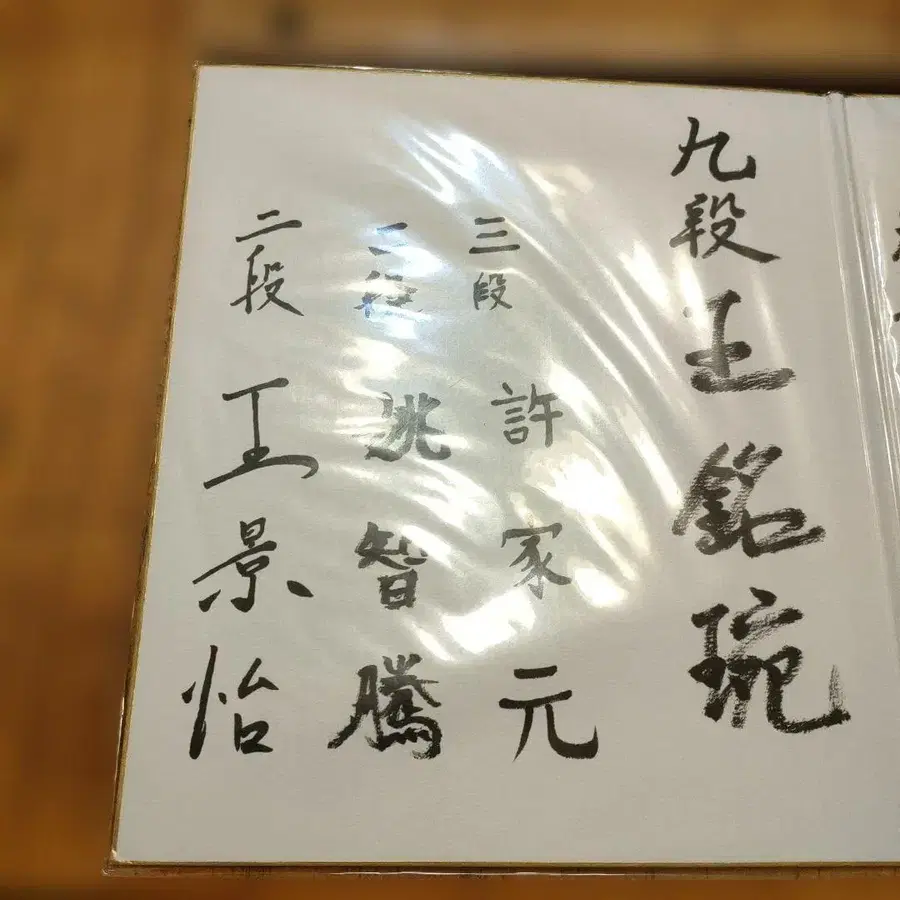 九段 王銘琬
三段 許家元
二段 姚智騰
二段 王景怡